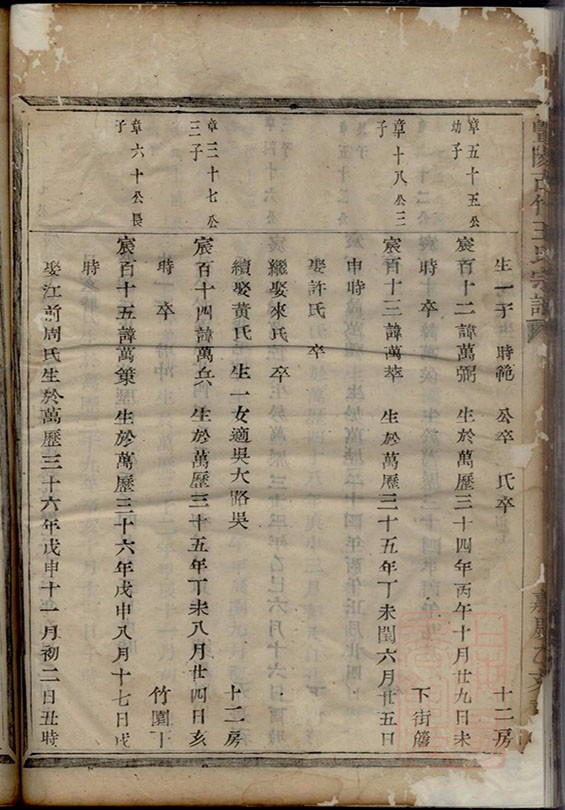 生一子時範 公卒 氏卒 十二房
章五十五公
幼子
宸百十二諱萬弼 生於萬歷三十四年丙午十月廿九日未
時卒 下街簷
章十八公三
子
宸百十三諱萬萃 生於萬歷三十五年丁未閏六月廿五日
申時
娶許氏 卒
繼娶來氏 卒
續娶黃氏 生一女適吳大路吳 十二房
章三十七公
三子
宸百十四諱萬兵 生於萬歷三十五年丁未八月廿四日亥
時 卒 竹園下
章六十公長
子
宸百十五諱萬 生於萬歷三十六年戊申八月十七日戌
時
娶江新周氏生於萬歷三十六年戊申十一月初二日丑時